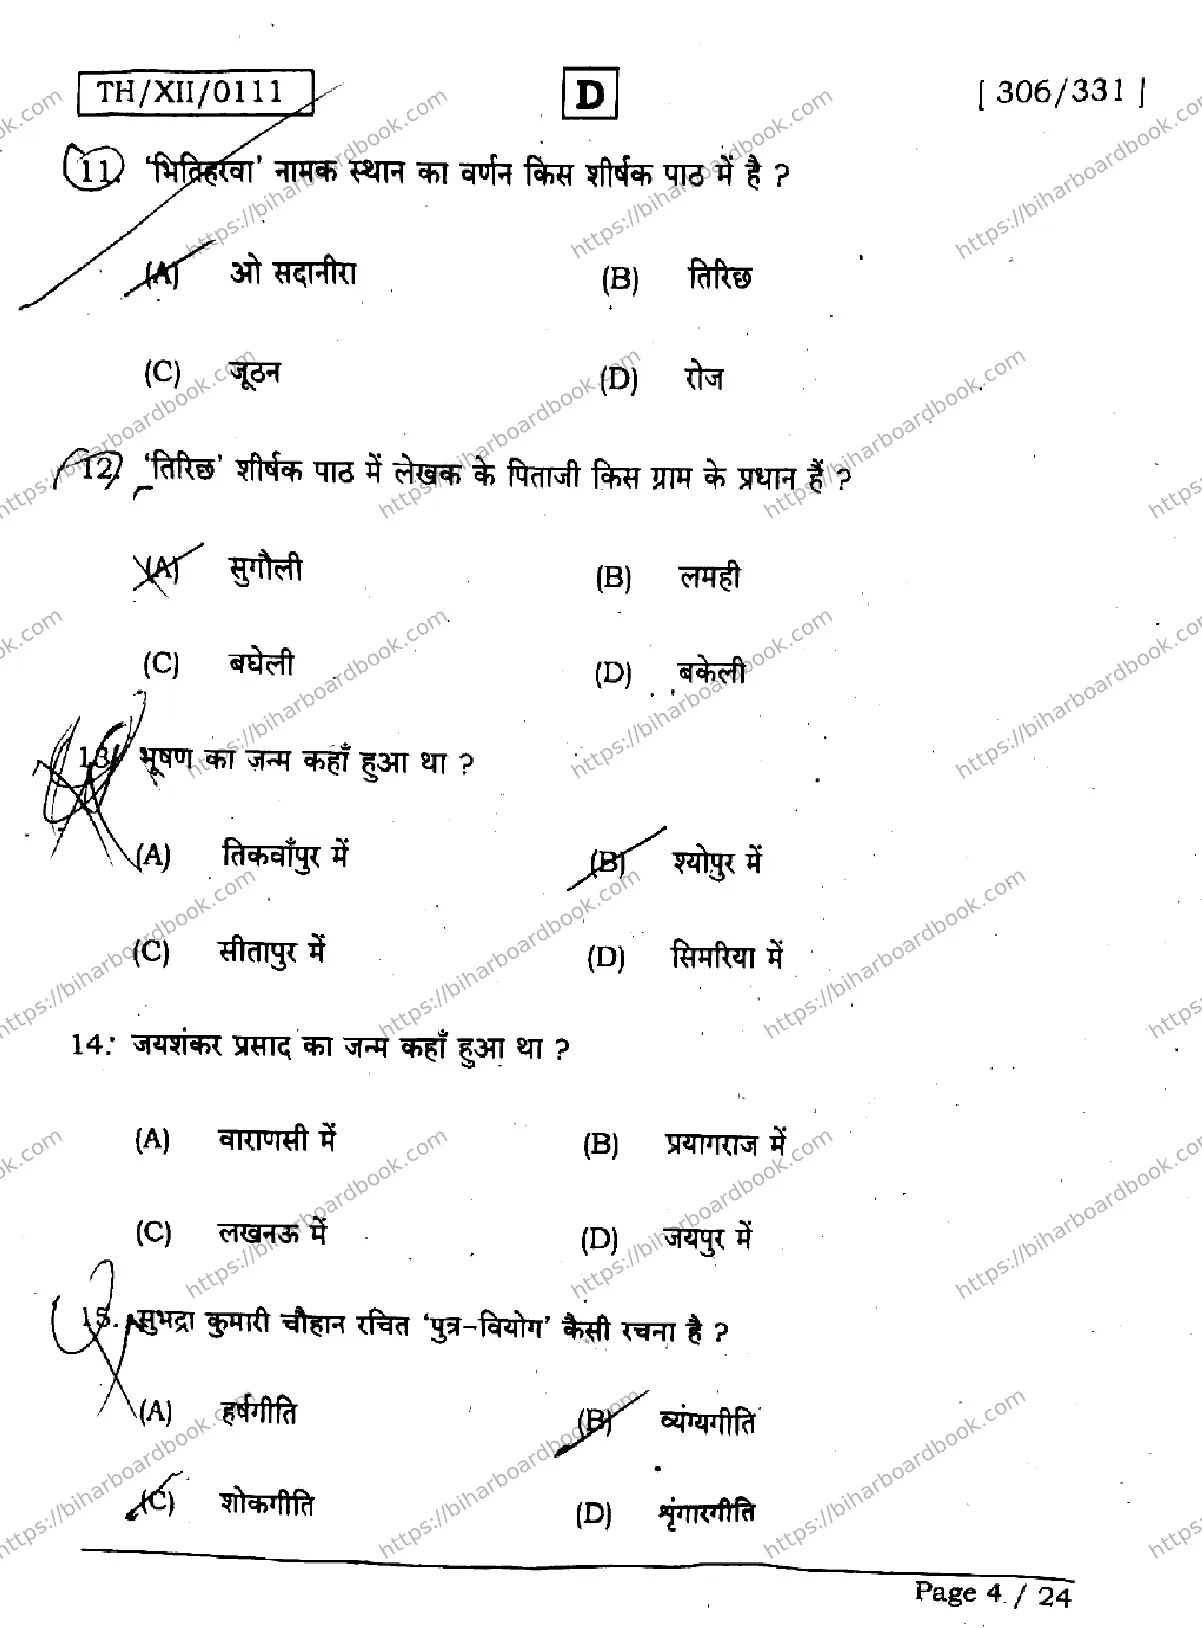 TH/XII/0111 D [ 306/331 ]
11. ‘भितिहरवा’ नामक स्थान का वर्णन किस शीर्षक पाठ में है ?
(A) ओ सदानीरा (B) तिरिछ
(C) जूठन (D) रोज
12. ‘तिरिछ’ शीर्षक पाठ में लेखक के पिताजी किस ग्राम के प्रधान हैं ?
(A) सुगौली (B) लमही
(C) बघेली (D) बकेली
13. भूषण का जन्म कहाँ हुआ था ?
(A) तिकवाँपुर में (B) श्योपुर में
(C) सीतापुर में (D) सिमरिया में
14. जयशंकर प्रसाद का जन्म कहाँ हुआ था ?
(A) वाराणसी में (B) प्रयागराज में
(C) लखनऊ में (D) जयपुर में
15. सुभद्रा कुमारी चौहान रचित ‘पुत्र-वियोग’ कैसी रचना है ?
(A) हर्षगीति (B) व्यंग्यगीति
(C) शोकगीति (D) शृंगारगीति
Page 4 / 24
https://biharboardbook.com